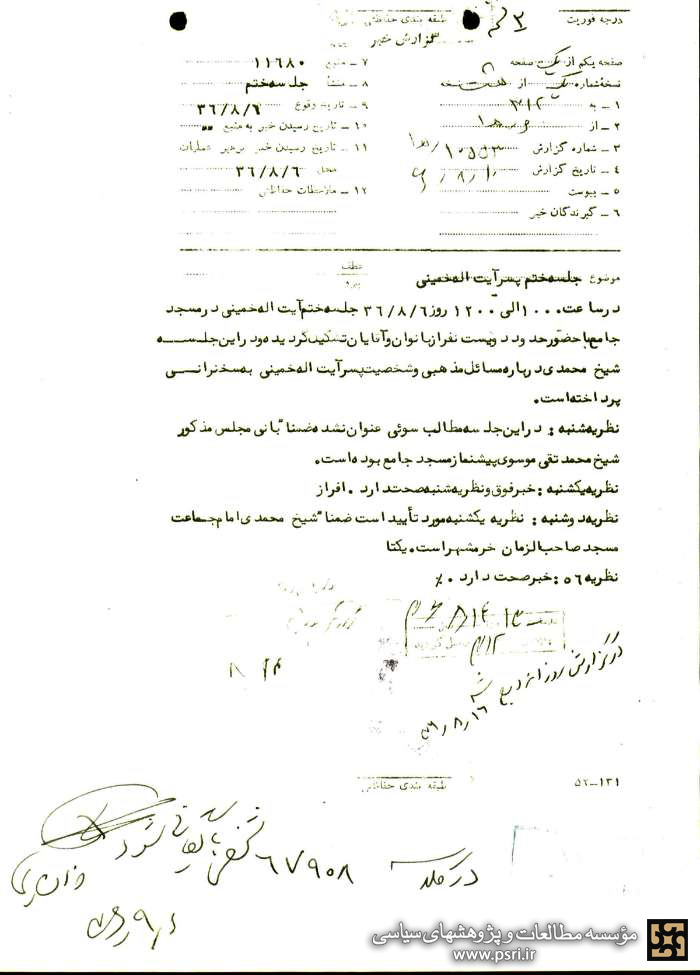 درجه فوریت
طبقه بندی حفاظتی
گزارش خبر
صفحه یکم از یک صفحه
نسخه شماره یک از نسخه
۱ ـ به ۳۱۲
۲ ـ از
۳ ـ شماره گزارش
۴ ـ تاریخ گزارش
۵ ـ پیوست
۶ ـ گیرندگان خبر
۷ ـ منبع ۱۱۶۸۰
۸ ـ منشأ جلسه ختم
۹ ـ تاریخ وقوع ۳۶/۸/۶
۱۰ ـ تاریخ رسیدن خبر به منبع ״
۱۱ ـ تاریخ رسیدن خبر برهبر عملیات
محل ۳۶/۸/۶
۱۲ ـ ملاحظات حفاظتی
موضوع جلسه ختم پسر آیت اله خمینی
عطف
پیرو
در ساعت ۱۰۰۰ الی ۱۲۰۰ روز ۳۶/۸/۶ جلسه ختم آیت اله خمینی در مسجد
جامع با حضور حدود دویست نفر از بانوان و آقایان تشکیل گردیده و در این جلسه
شیخ محمدی درباره مسائل مذهبی و شخصیت پسر آیت اله خمینی به سخنرانی
پرداخته است.
نظریه شنبه : در این جلسه مطالب سوئی عنوان نشده ضمنا" بانی مجلس مذکور
شیخ محمد تقی موسوی پیشنماز مسجد جامع بوده است.
نظریه یکشنبه : خبر فوق و نظریه شنبه صحت دارد . افراز
نظریه دوشنبه : نظریه یکشنبه مورد تأیید است ضمنا" شیخ محمدی امام جماعت
مسجد صاحب الزمان خرمشهر است. یکتا
نظریه ۵۶ : خبر صحت دارد .٪
در گزارش روزانه درج شد
۱۶/۸/۳۶
طبقه بندی حفاظتی
۵۲-۱۳۱
در کلاسه ۶۷۹۰۸
مؤسسه مطالعات و پژوهشهای سیاسی
www.psri.ir